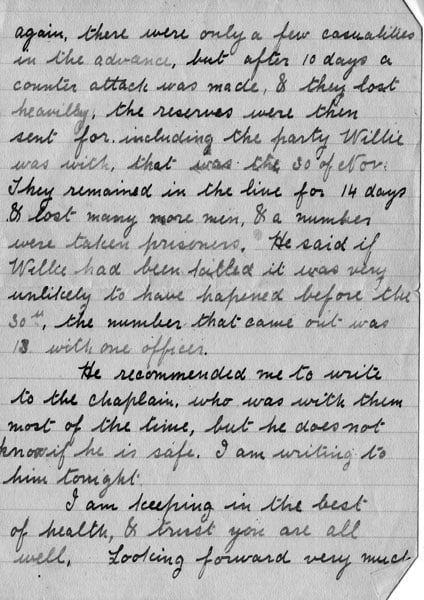 again, there were only a few casualities
in the advance, but after 10 days a
counter attack was made, & they lost
heavilly, the reserves were then
sent for. including the party Willie
was with, that was the 30 of Nov.
They remained in the line for 14 days
& lost many more men, & a number
were taken prisoners. He said if
Willie had been killed it was very
unlikely to have hapened before the
30th, the number that came out was
13 with one officer.
He recommended me to write
to the chaplain, who was with them
most of the time, but he does not
know if he is safe. I am writing to
him tonight.
I am keeping in the best
of health, & trust you are all
well. Looking forward very much